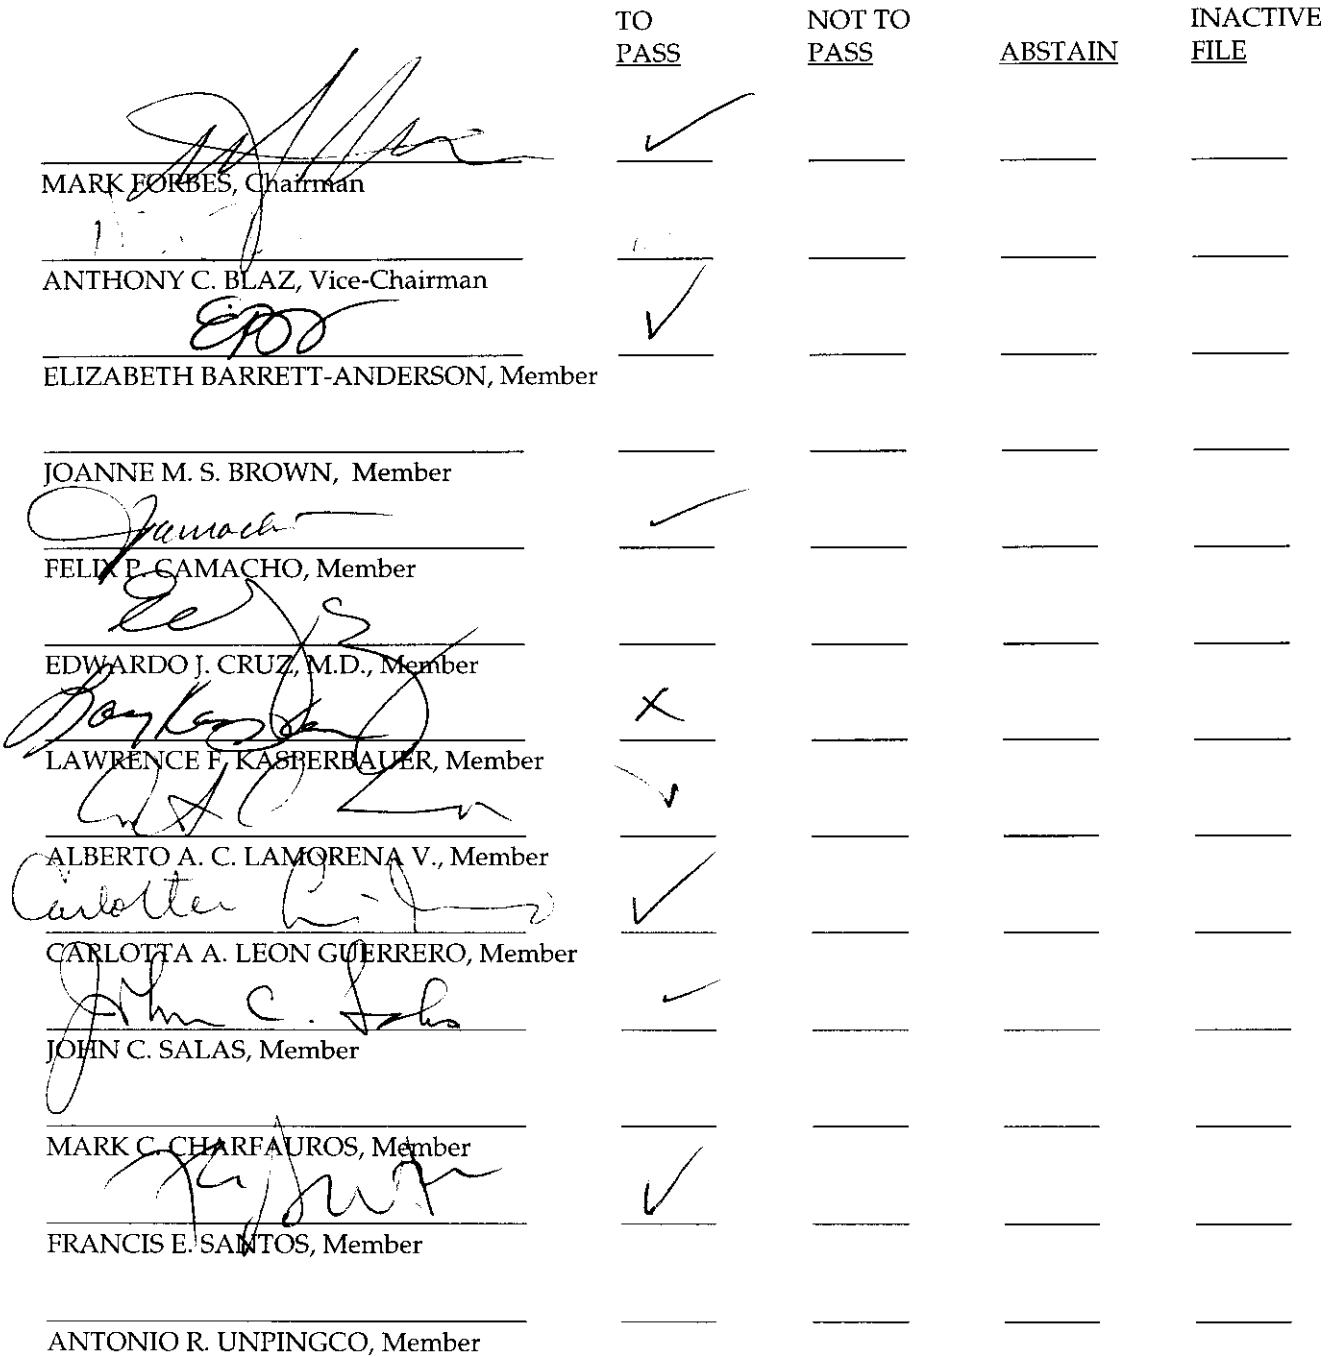 TO NOT TO INACTIVE
PASS PASS ABSTAIN FILE
✓
MARK FORBES, Chairman
ANTHONY C. BLAZ, Vice-Chairman
✓
ELIZABETH BARRETT-ANDERSON, Member
JOANNE M. S. BROWN, Member
Camacho ✓
FELIX P. CAMACHO, Member
EDWARDO J. CRUZ, M.D., Member
X
LAWRENCE F. KASPERBAUER, Member
✓
ALBERTO A. C. LAMORENA V., Member
Carlotta ✓
CARLOTTA A. LEON GUERRERO, Member
John C. Salas ✓
JOHN C. SALAS, Member
MARK C. CHARFAUROS, Member
✓
FRANCIS E. SANTOS, Member
ANTONIO R. UNPINGCO, Member